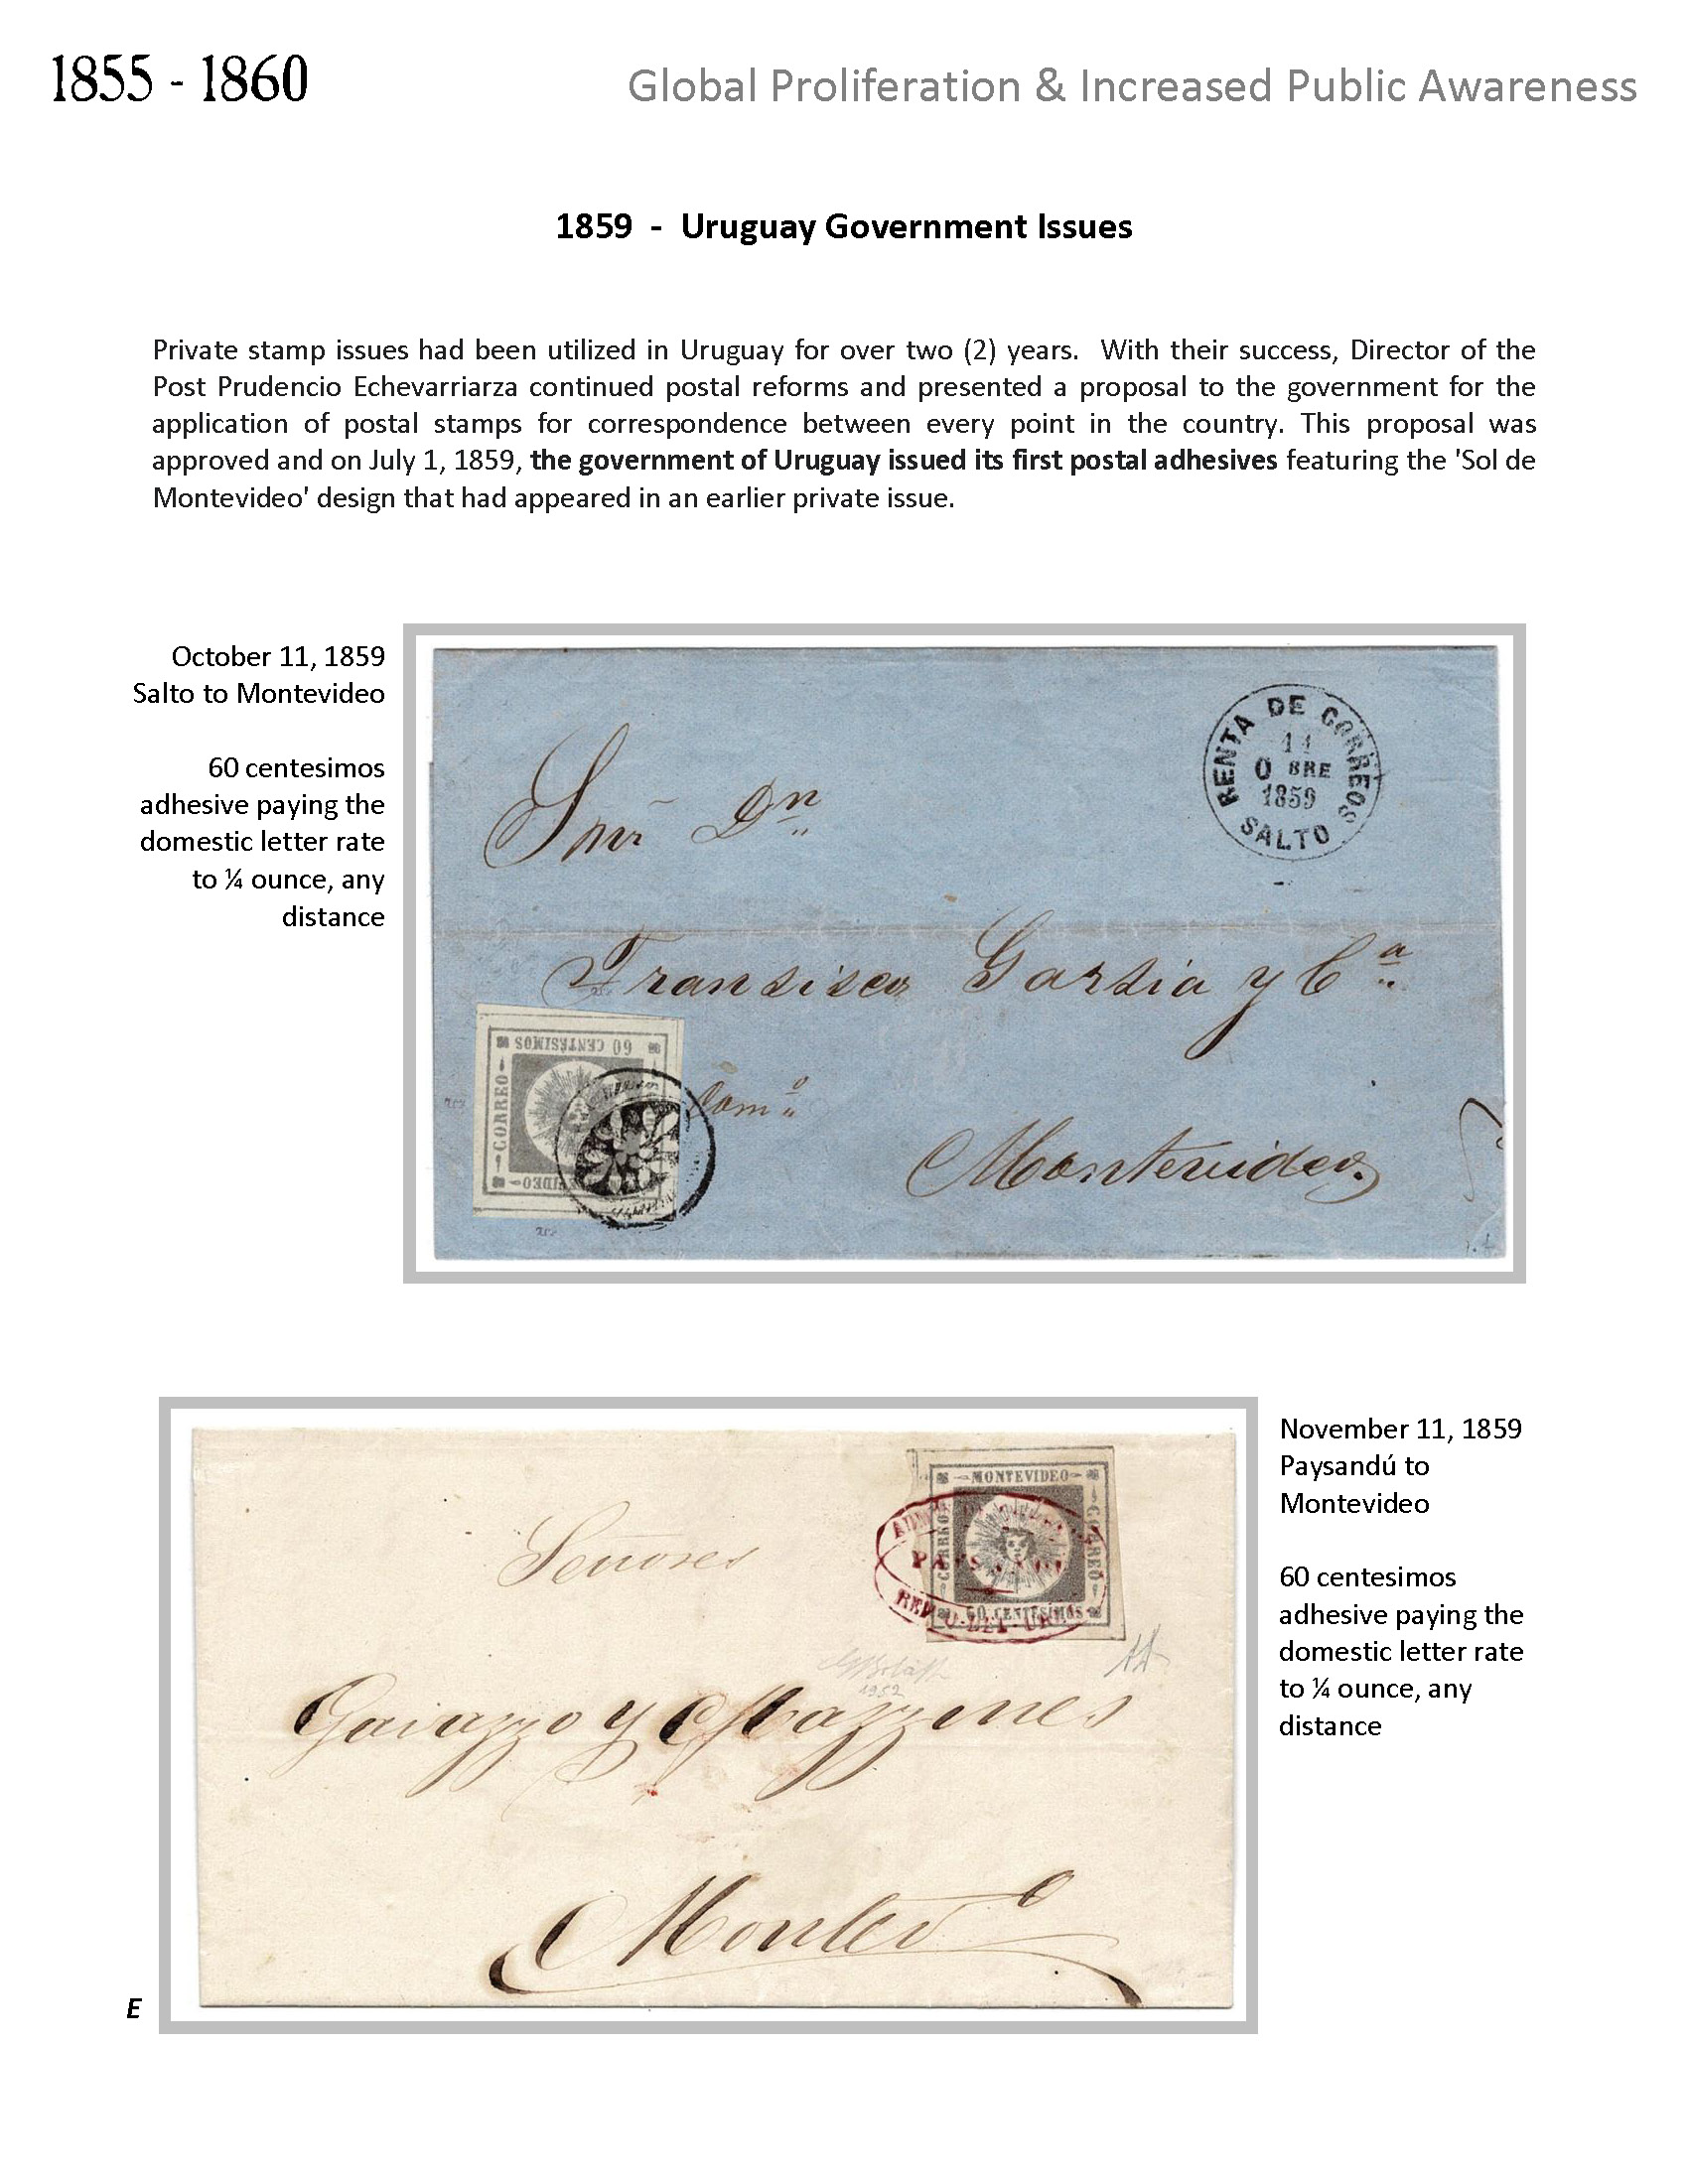 1855 - 1860
Global Proliferation & Increased Public Awareness
1859 - Uruguay Government Issues
Private stamp issues had been utilized in Uruguay for over two (2) years. With their success, Director of the
Post Prudencio Echevarriarza continued postal reforms and presented a proposal to the government for the
application of postal stamps for correspondence between every point in the country. This proposal was
approved and on July 1, 1859, the government of Uruguay issued its first postal adhesives featuring the 'Sol de
Montevideo' design that had appeared in an earlier private issue.
October 11, 1859
Salto to Montevideo
60 centesimos
adhesive paying the
domestic letter rate
to ¼ ounce, any
distance
RENTA DE CORREOS
11
O BRE
1859
SALTO
Dn
Fransisco Garsia y Ca
Montevideo
60 CENTÉSIMOS
CORREO
November 11, 1859
Paysandú to
Montevideo
60 centesimos
adhesive paying the
domestic letter rate
to ¼ ounce, any
distance
MONTEVIDEO
CORREO
CORREO
60 CENTÉSIMOS
Señores
1952
Montevo
E